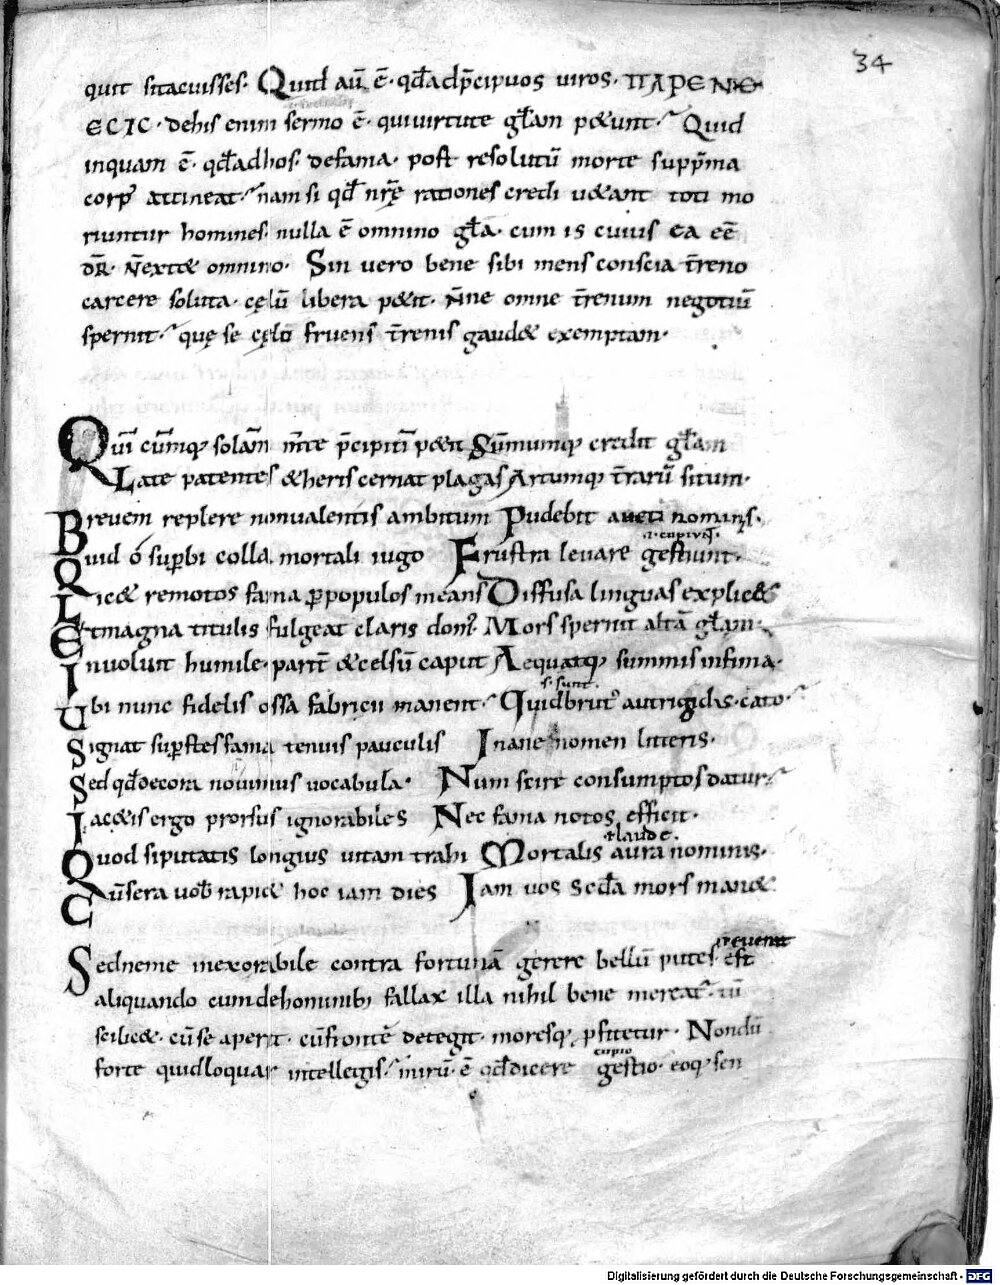 34
quit si tacuisses. Quid aū ē. qđ ad p̄cipuos uiros. ΠΑΡΕΝΘ
ΕϹΙϹ. de his enim sermo ē. qui uirtute gl̄am petunt. Quid
inquam ē. qđ ad hos. de fama. post resolutū morte supp̄ma
corp᷒ attineat. Nam si qđ nr̄ę rationes credi uetant toti mo
riuntur homines. nulla ē omnino gl̄a. cum is cuius ea eē
dr̄. n̄ extet omnino. Sin uero bene sibi mens conscia t̄reno
carcere soluta. cęlū libera petit. n̄ne omne t̄renum negotiū
spernit. quę se cęlo fruens t̄renis gaudet exemptam.
Qui cūmq; solam m̄te p̄cipiti petit Sūmumq; credit gl̄am
Late patentes ætheris cernat plagas Artumq; t̄rarū situm.
Breuem replere non ualentis ambitum Pudebit aucti nominis.
.i. cupiunt.
Quid ó supbi colla mortali iugo Frustra leuare gestiunt.
Licet remotos fama p populos means Diffusa linguas explicet
Et magna titulis fulgeat claris dom᷒ Mors spernit altā gl̄am.
Inuoluit humile parit̄ & celsū caput Aequatq; summis infima.
.s. sunt.
Ubi nunc fidelis ossa fabricii manent. Quid brut᷒ aut rigidus cato.
Signat supstes fama tenuis pauculis Inane nomen litteris.
Sed qđ decora nouimus uocabula. Num scire consumptos datur.
Iacetis ergo prorsus ignorabiles Nec fama notos efficit.
.i. laude.
Quod si putatis longius uitam trahi Mortalis aura nominis.
Cū sera uob̄ rapiet hoc iam dies Iam uos secđa mors manet
Sed ne me inexorabile contra fortunā gerere bellū putes. est
aliquando cum de hominib; fallax illa nihil bene mereat᷒. tū
scilicet. cū se aperit. cū frontē detegit. moresq; pfitetur. Nondū
cupio
forte quid loquar intellegis. mirū ē qđ dicere gestio. eoq; sen
Digitalisierung gefördert durch die Deutsche Forschungsgemeinschaft - DFG